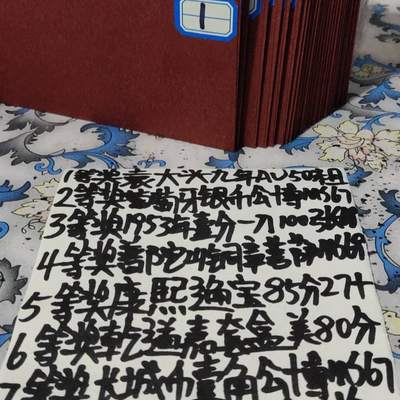 1
1等奖袁大头九年AU50
2等奖葡萄牙银币公博MS67
3等奖1953年壹分一刀100
4等奖普陀山铜章
5等奖康熙通宝85分27+
6等奖乾通嘉 盒美80分
7等奖长城币壹角公博MS67